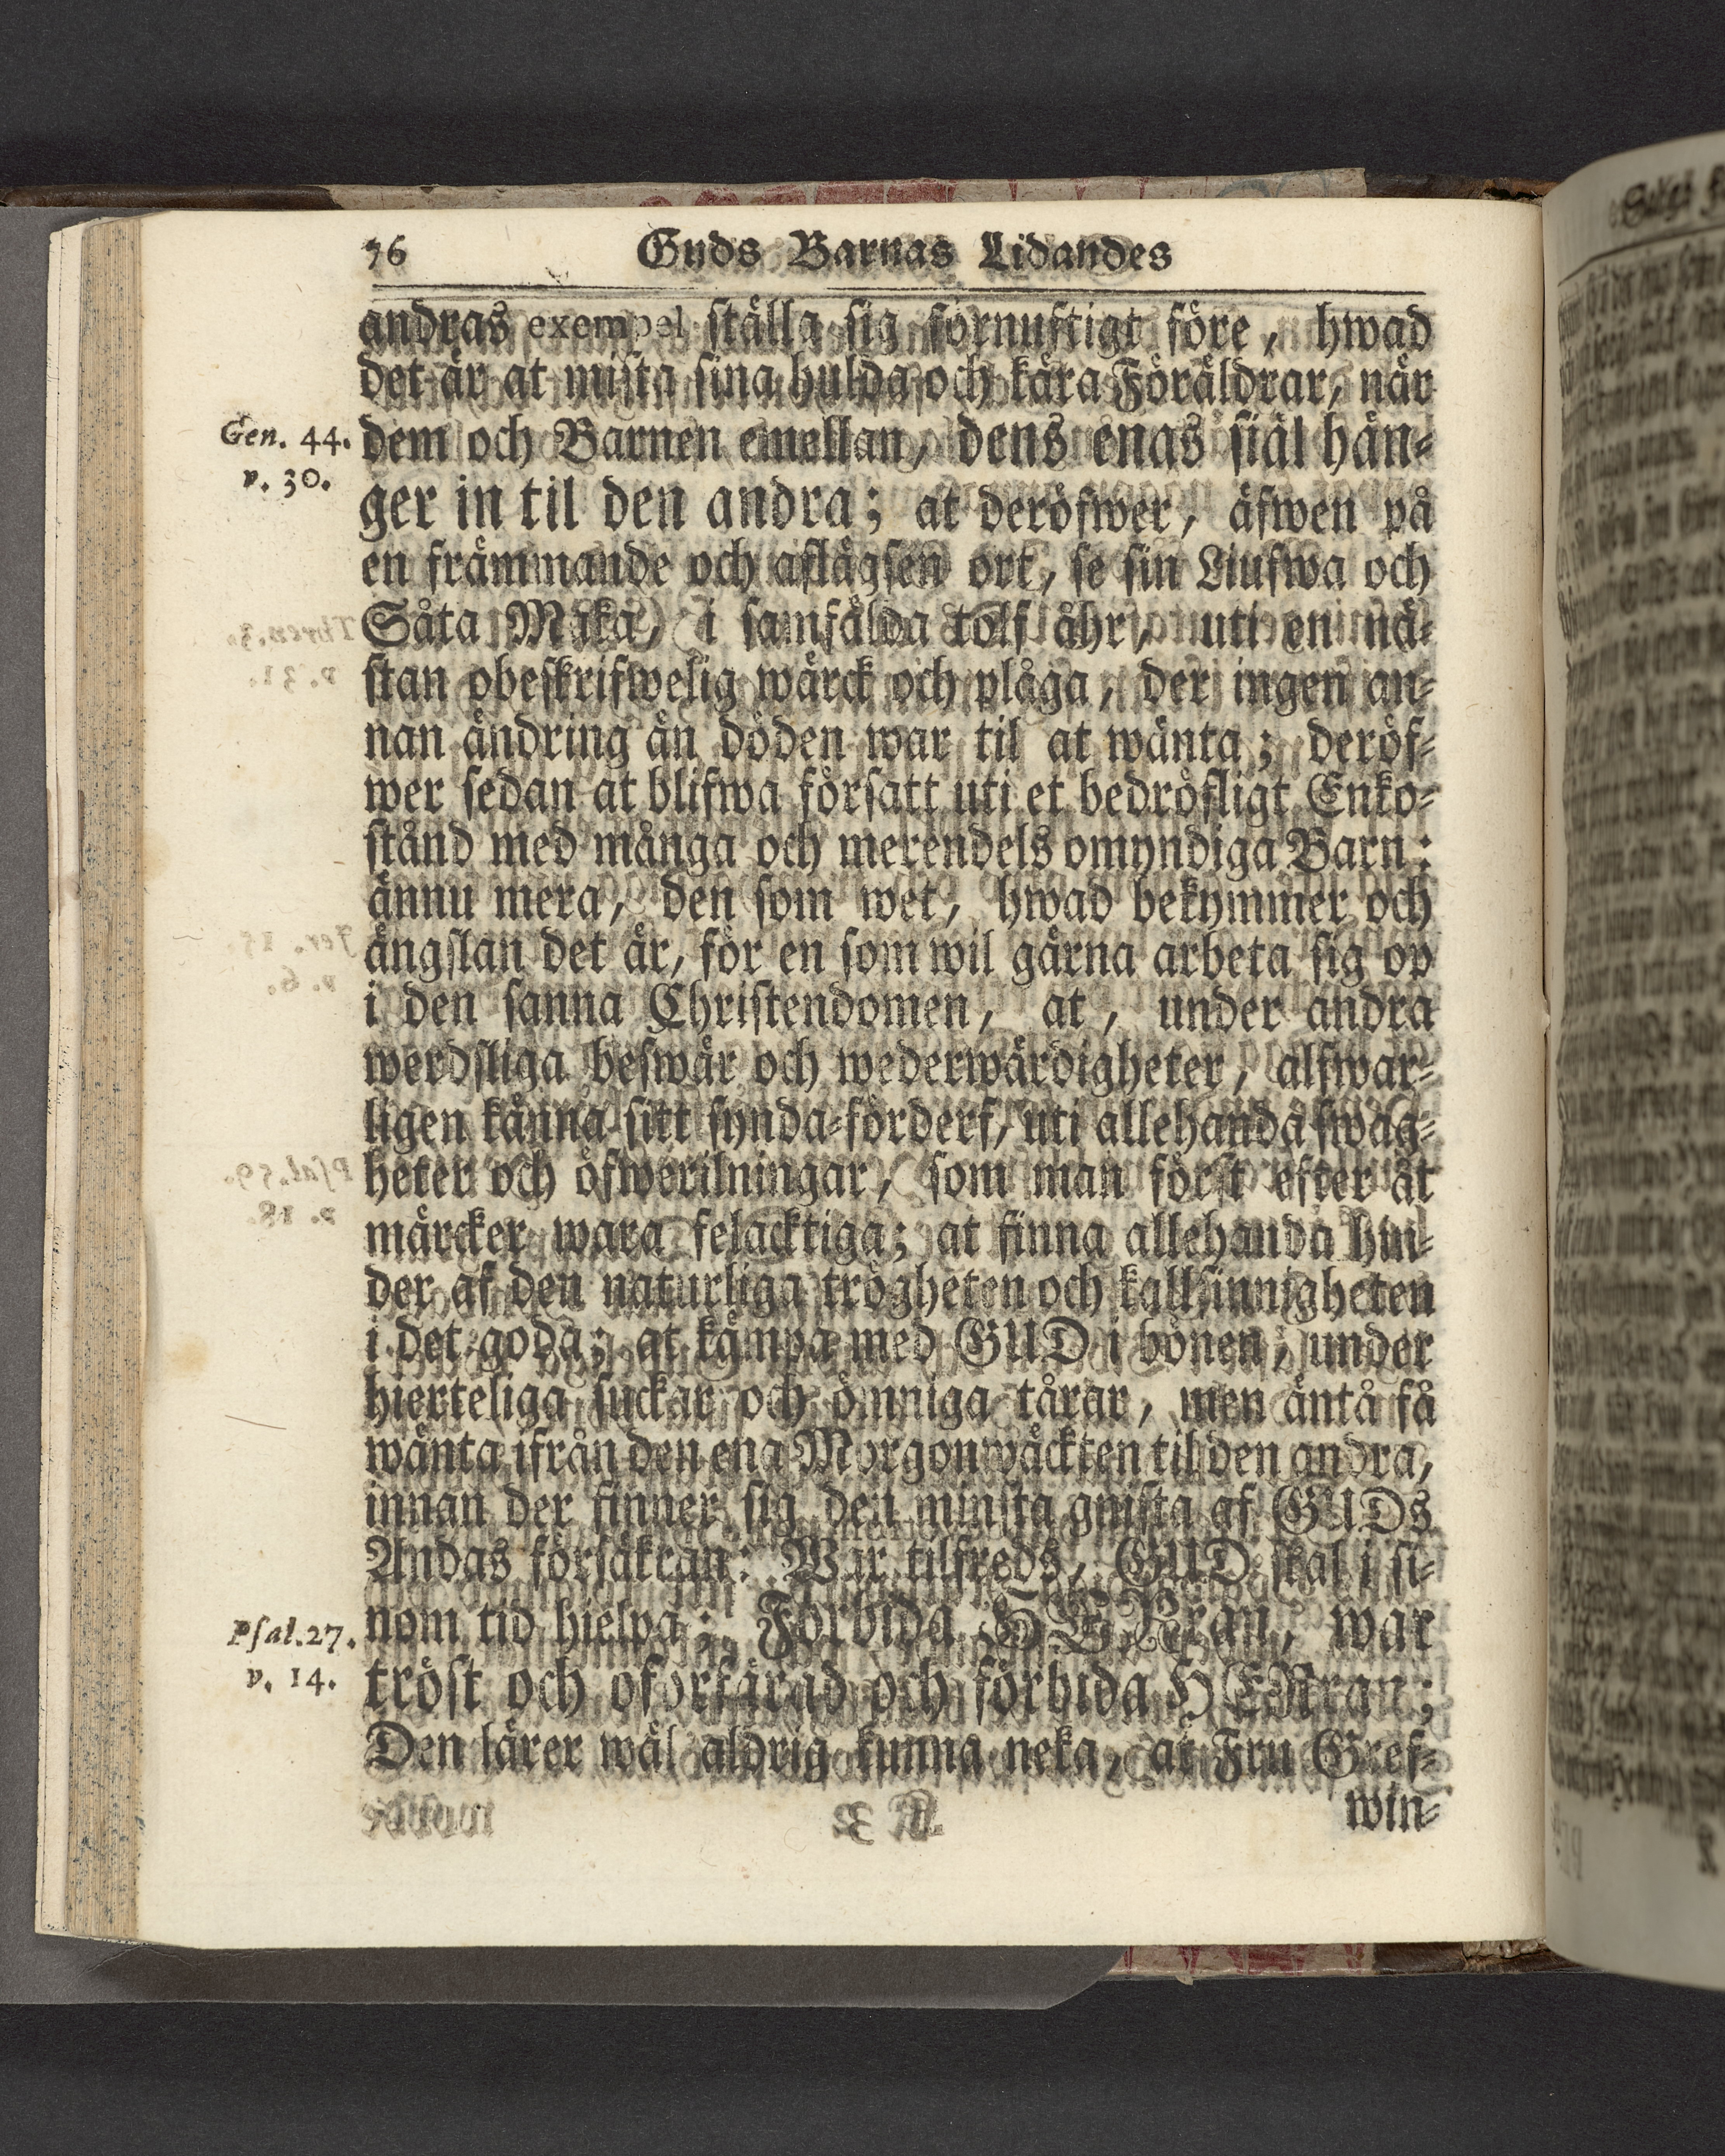 76 Guds Barnas Lidandes
andras exempel ställa sig förnuftigt före, hwad
det är at mista sina hulda och kära Föräldrar, när
Gen. 44. dem och Barnen emellan, dens enas siäl hän-
v. 30. ger in til den andra; at deröfwer, äfwen på
en främmande och aflägsen ort, se sin Liufwa och
Såta Maka, i samfälda tolf åhr, uti en nä-
stan obeskrifwelig wärck och plåga, der ingen an-
nan ändring än döden war til at wänta; deröf-
wer sedan at blifwa försatt uti et bedröfligt Enko-
stånd med många och merendels omyndiga Barn:
ännu mera, den som wet, hwad bekymmer och
ängslan det är, för en som wil gärna arbeta sig op
i den sanna Christendomen, at, under andra
werdsliga beswär och wederwärdigheter, alfwar-
ligen känna sitt synda-förderf, uti allehanda swag-
heter och öfwerilningar, som man först efter åt
märcker wara felacktiga; at finna allehanda hin-
der af den naturliga trögheten och kallsinnigheten
i det goda; at kämpa med GUD i bönen, under
hierteliga suckar och ömniga tårar, men äntå få
wänta ifrån den ena Morgonwäckten til den andra,
innan der finner sig den minsta gnista af GUDs
Andas försäkran: War tilfreds, GUD skal i si-
Psal. 27. nom tid hielpa; Förbida HERran, war
v. 14. tröst och oförfärad och förbida HERran;
Den lärer wäl aldrig kunna neka, at Fru Gref-
win-